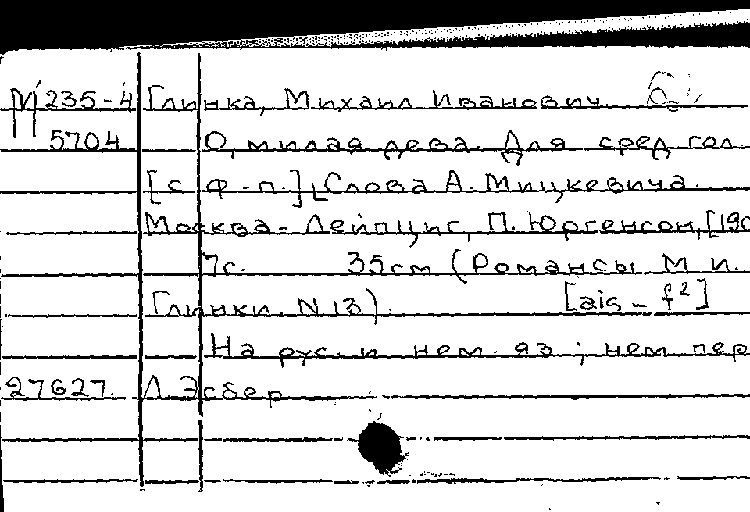 М 235-4 Глинка, Михаил Иванович.
5704 О, милая дева. Для сред гол
[с ф-п.] Слова А. Мицкевича.
Москва - Лейпциг, П. Юргенсон, [190
7с. 35см (Романсы М. И.
Глинки. N 13) [ais - f²]
На рус. и нем. яз; нем. пер
27627 Л. Эсбер